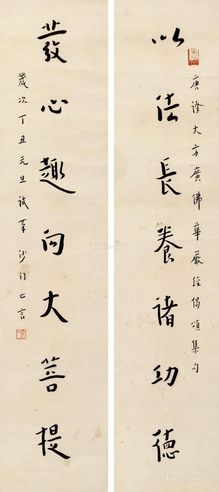 唐譯大方廣佛華嚴經偈頌集句
以法長養諸功德
發心趣向大菩提
歲次丁丑元旦試筆沙門亡言